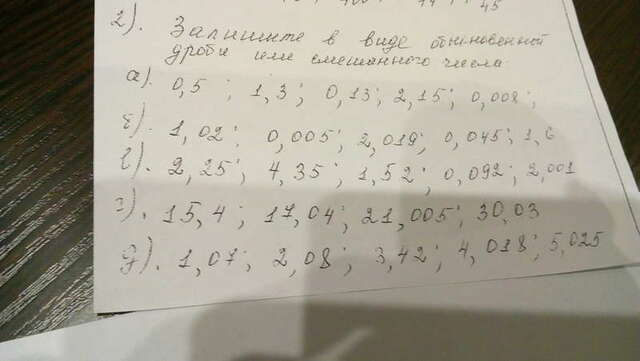 45
2). Запишите в виде обыкновенной
дроби или смешанного числа
а). 0,5 ; 1,3 ; 0,13 ; 2,15 ; 0,008 ;
б). 1,02 ; 0,005 ; 2,019 ; 0,045 ; 1,6
в). 2,25 ; 4,35 ; 1,52 ; 0,092 ; 2,001
г). 15,4 ; 17,04 ; 21,005 ; 30,03
д). 1,07 ; 2,08 ; 3,42 ; 4,018 ; 5,025